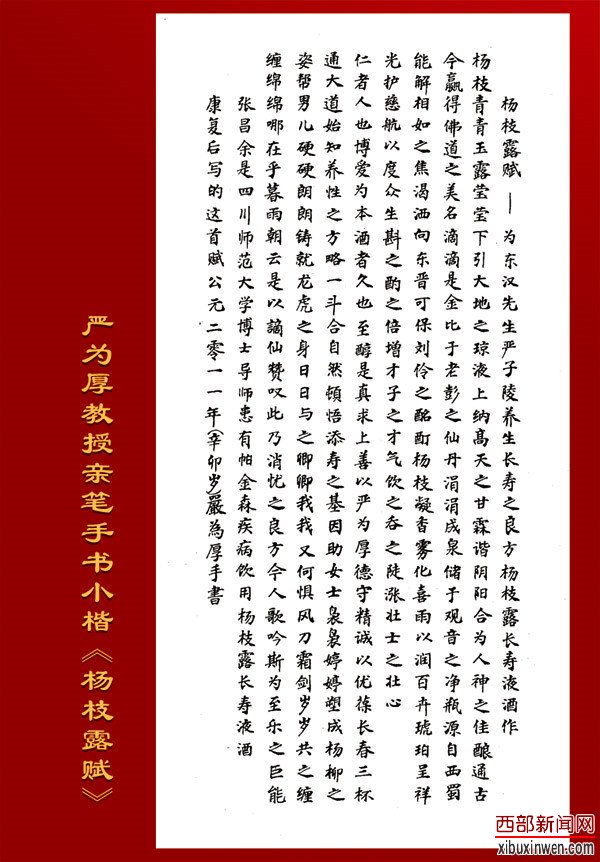 杨枝露赋——为东汉先生严子陵养生长寿之良方杨枝露长寿液酒作
杨枝青青玉露莹莹下引大地之琼液上纳高天之甘霖谐阴阳合为人神之佳酿通古
今赢得佛道之美名滴滴是金比于老彭之仙丹涓涓成泉储于观音之净瓶源自西蜀
能解相如之焦渴洒向东晋可保刘伶之酩酊杨枝凝香雾化喜雨以润百卉琥珀呈祥
光护慈航以度众生斟之酌之倍增才子之才气饮之吞之陡涨壮士之壮心
仁者人也博爱为本酒者久也至醇是真求上善以严为厚德守精诚以优葆长春三杯
通大道始知养性之方略一斗合自然頓悟添寿之基因助女士袅袅婷婷塑成杨柳之
姿帮男儿硬硬朗朗铸就龙虎之身日日与之卿卿我我又何惧风刀霜剑岁岁共之缠
缠绵绵哪在乎暮雨朝云是以谪仙赞叹此乃消忧之良方令人歌吟斯为至乐之巨能
张昌余是四川师范大学博士导师患有帕金森疾病饮用杨枝露长寿液酒
康复后写的这首赋公元二零一一年(辛卯岁)嚴為厚手書
严为厚教授亲笔手书小楷《杨枝露赋》
西部新闻网
xibuxinwen.com